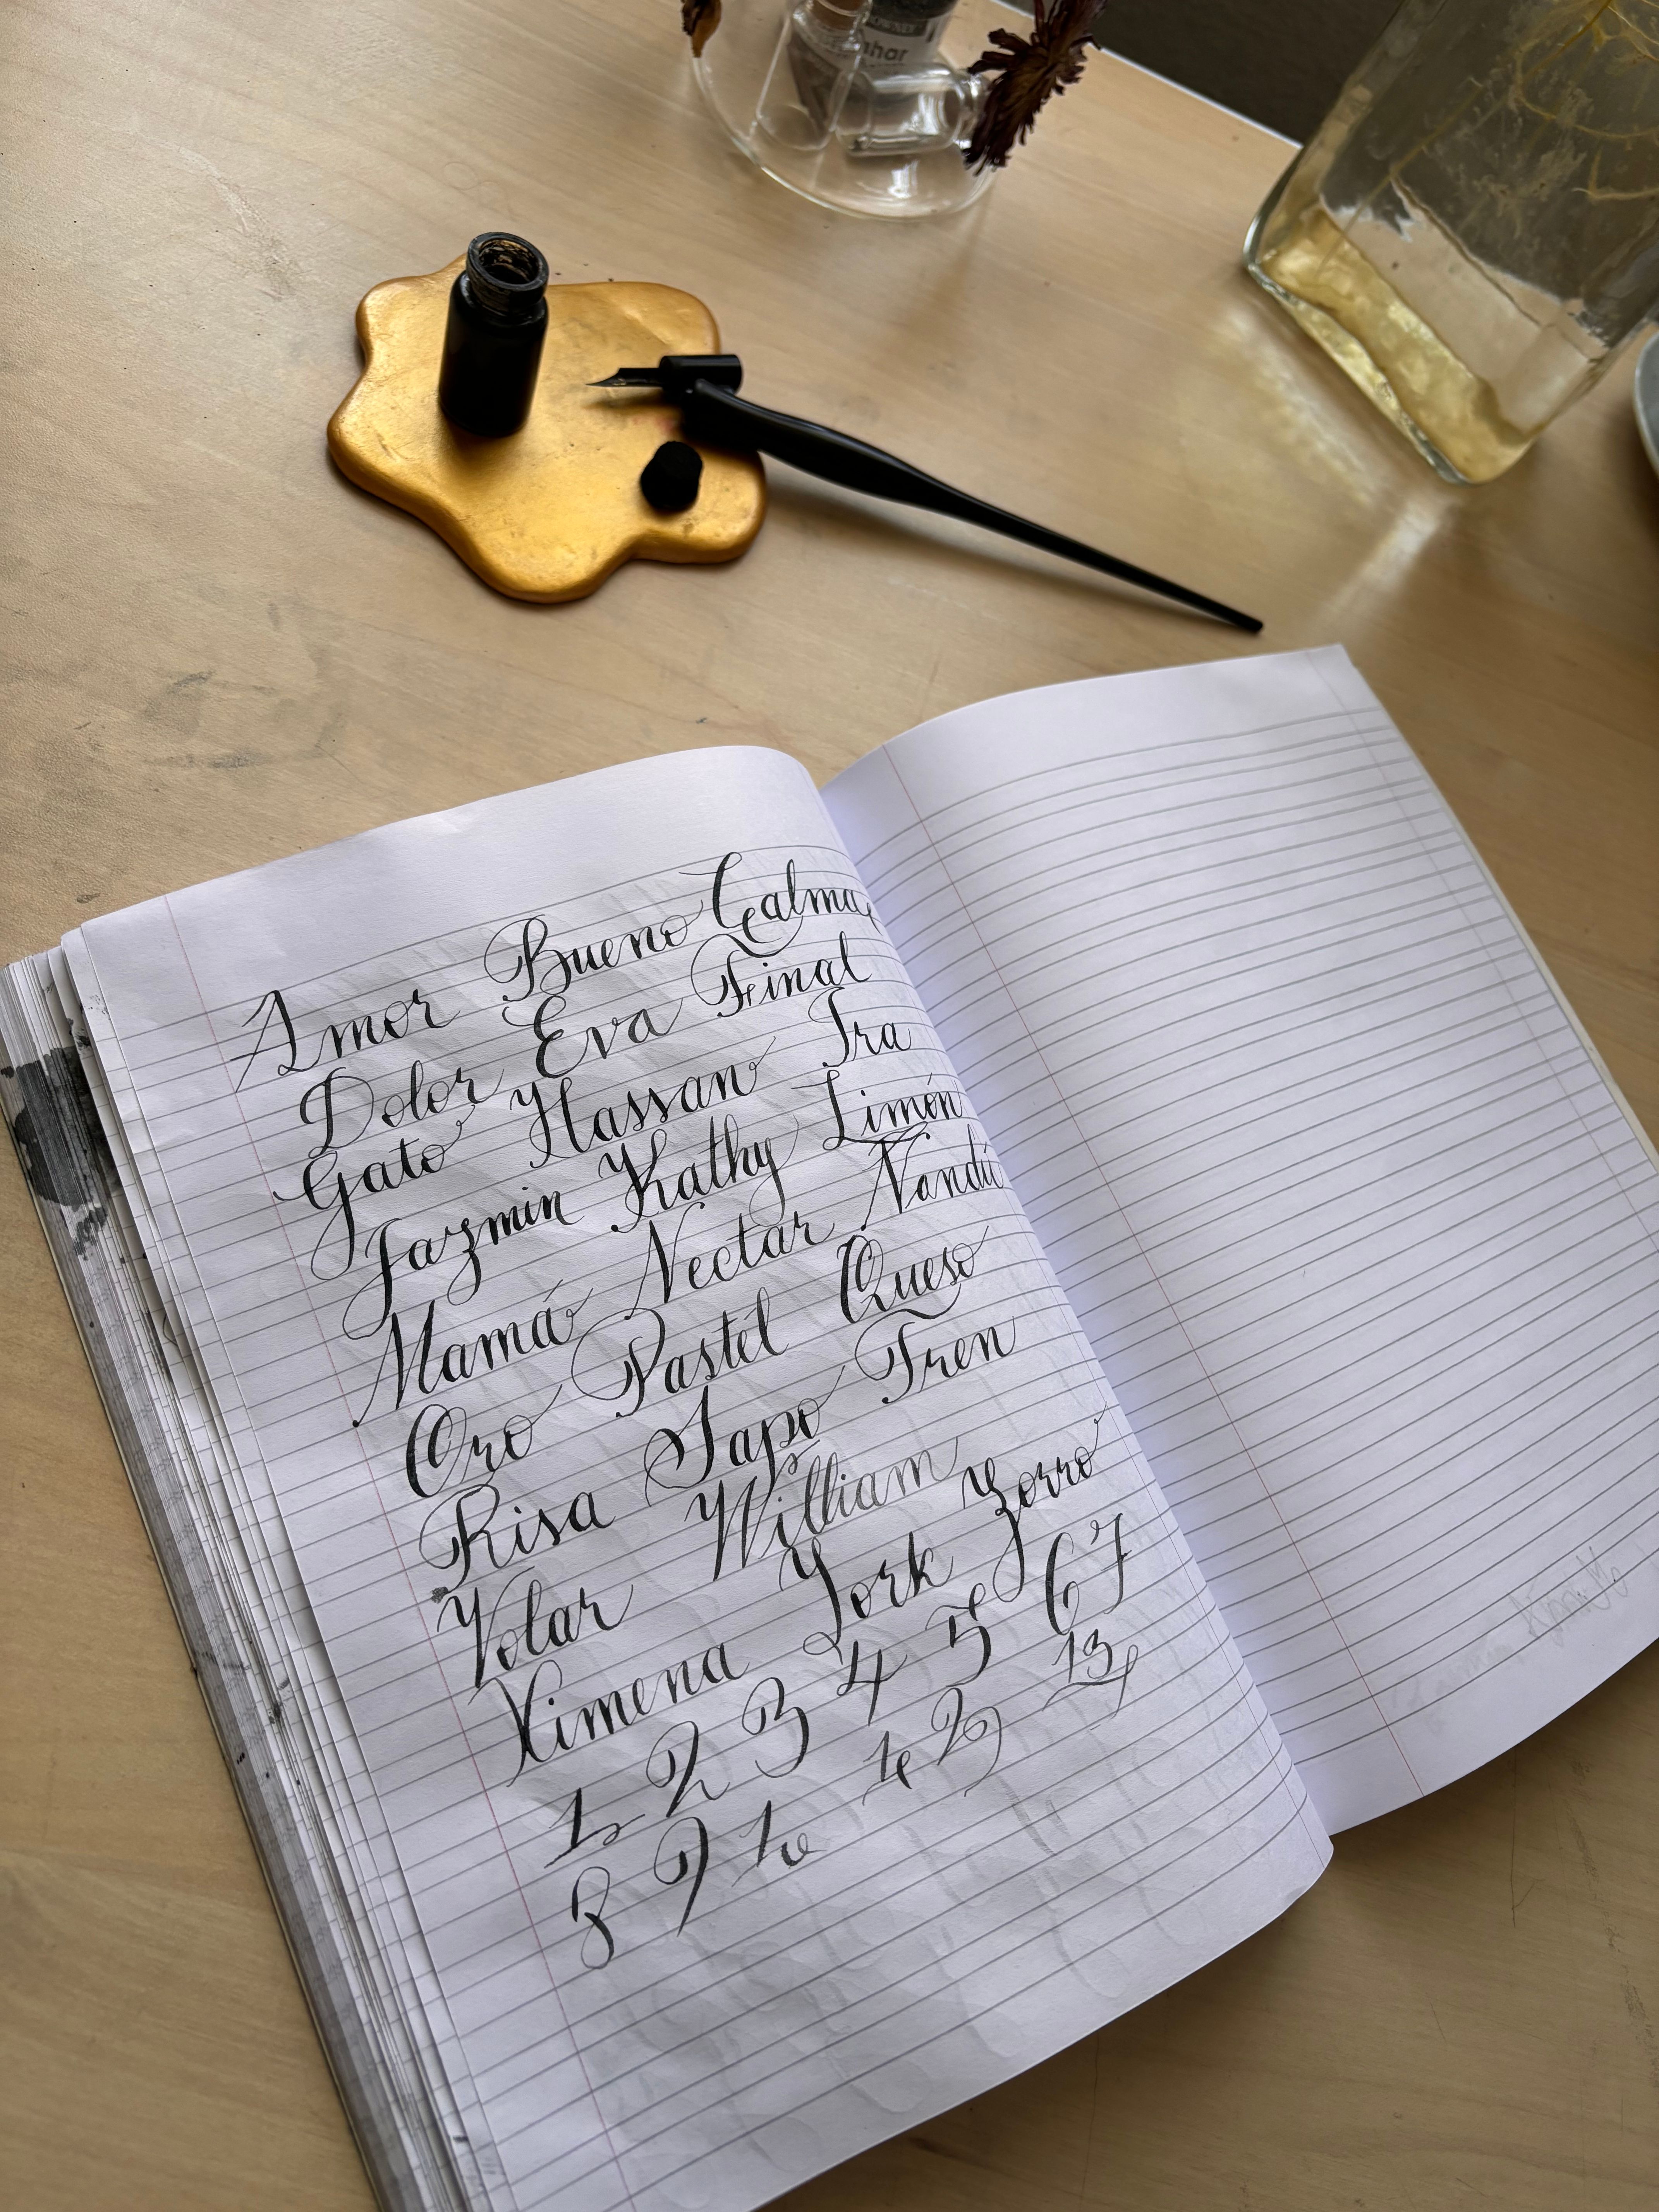 Amor Bueno Calma
Dolor Eva Final
Gato Hassan Ira
Jazmin Kathy Limón
Mamá Nectar Ñandú
Oro Pastel Queso
Risa Sapo Tren
Volar William
Ximena York Zorro
1 2 3 4 5 6 7
8 9 10 11 12 13